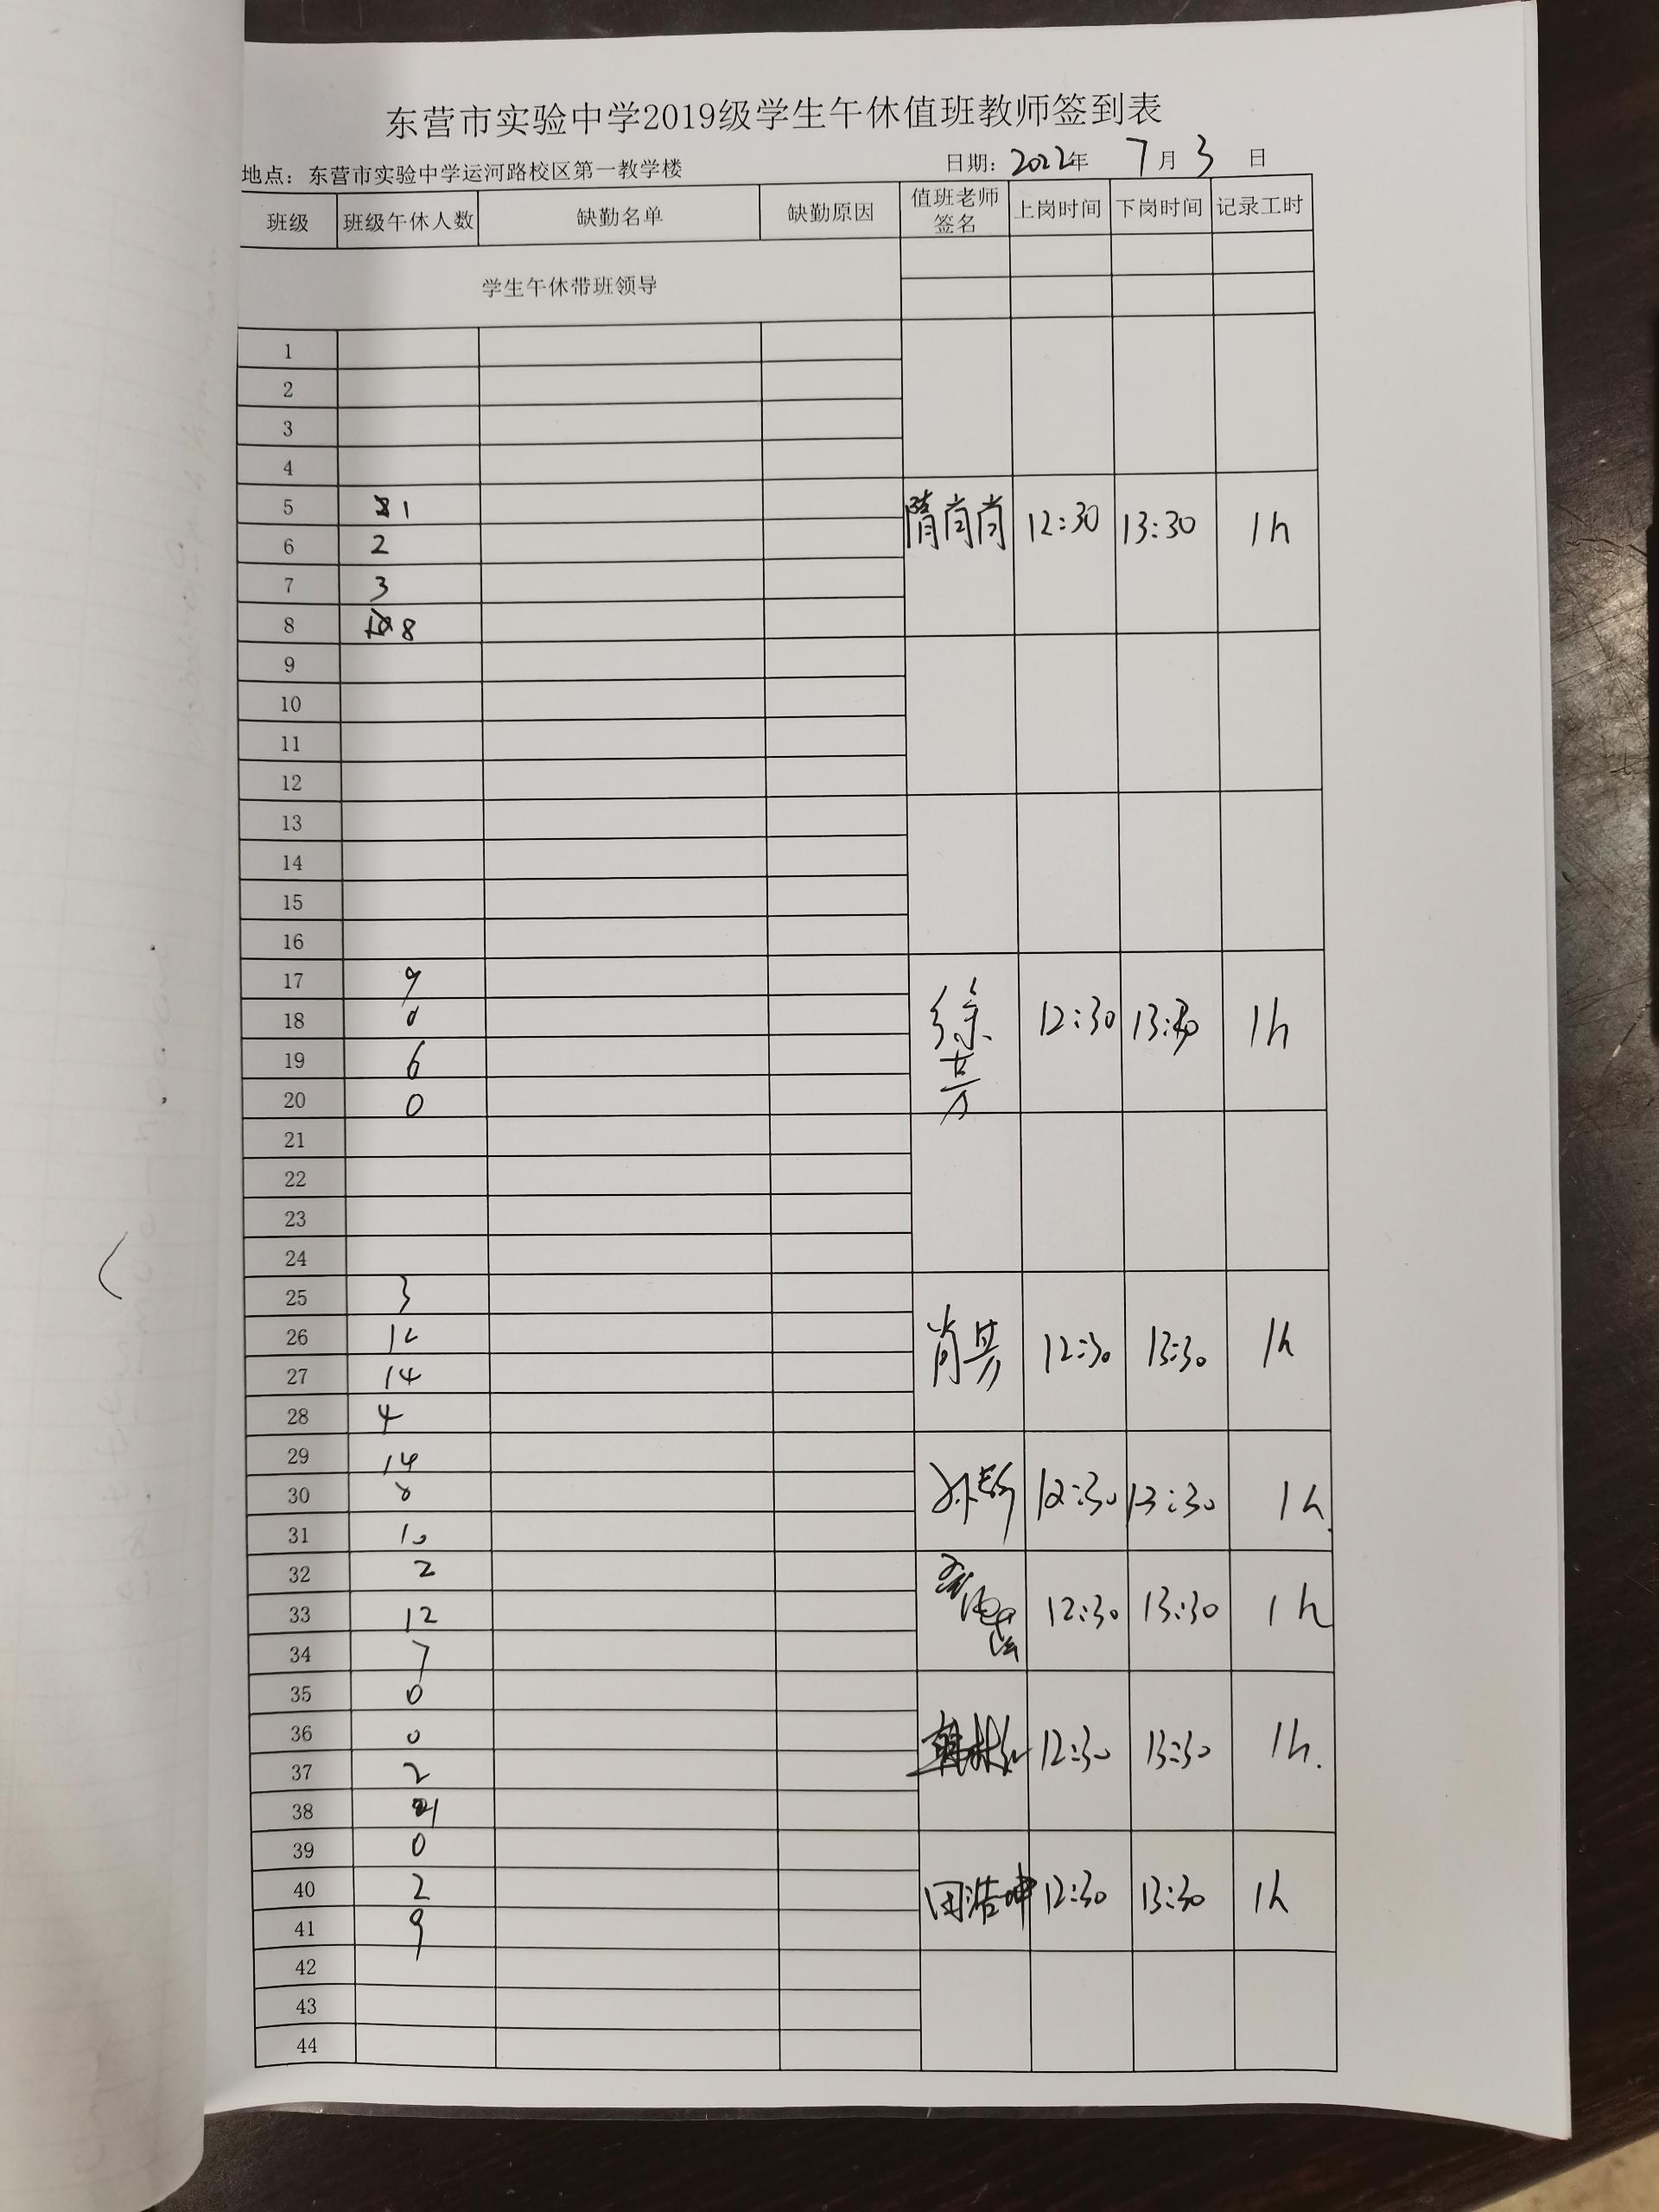 东营市实验中学2019级学生午休值班教师签到表
地点：东营市实验中学运河路校区第一教学楼 日期：2022年 7月 3 日
班级 班级午休人数 缺勤名单 缺勤原因 值班老师签名 上岗时间 下岗时间 记录工时
学生午休带班领导
1
2
3
4
5 1 隋肖肖 12:30 13:30 1h
6 2
7 3
8 8
9
10
11
12
13
14
15
16
17 9
18 徐芳 12:30 13:30 1h
19 6
20 0
21
22
23
24
25 3
26 12 肖芳 12:30 13:30 1h
27 14
28 4
29 14
30 8 孙 12:30 13:30 1h
31 10
32 2
33 12 12:30 13:30 1h
34 7
35 0
36 0 韩 12:30 13:30 1h.
37 2
38
39 0
40 2 田浩坤 12:30 13:30 1h
41 9
42
43
44